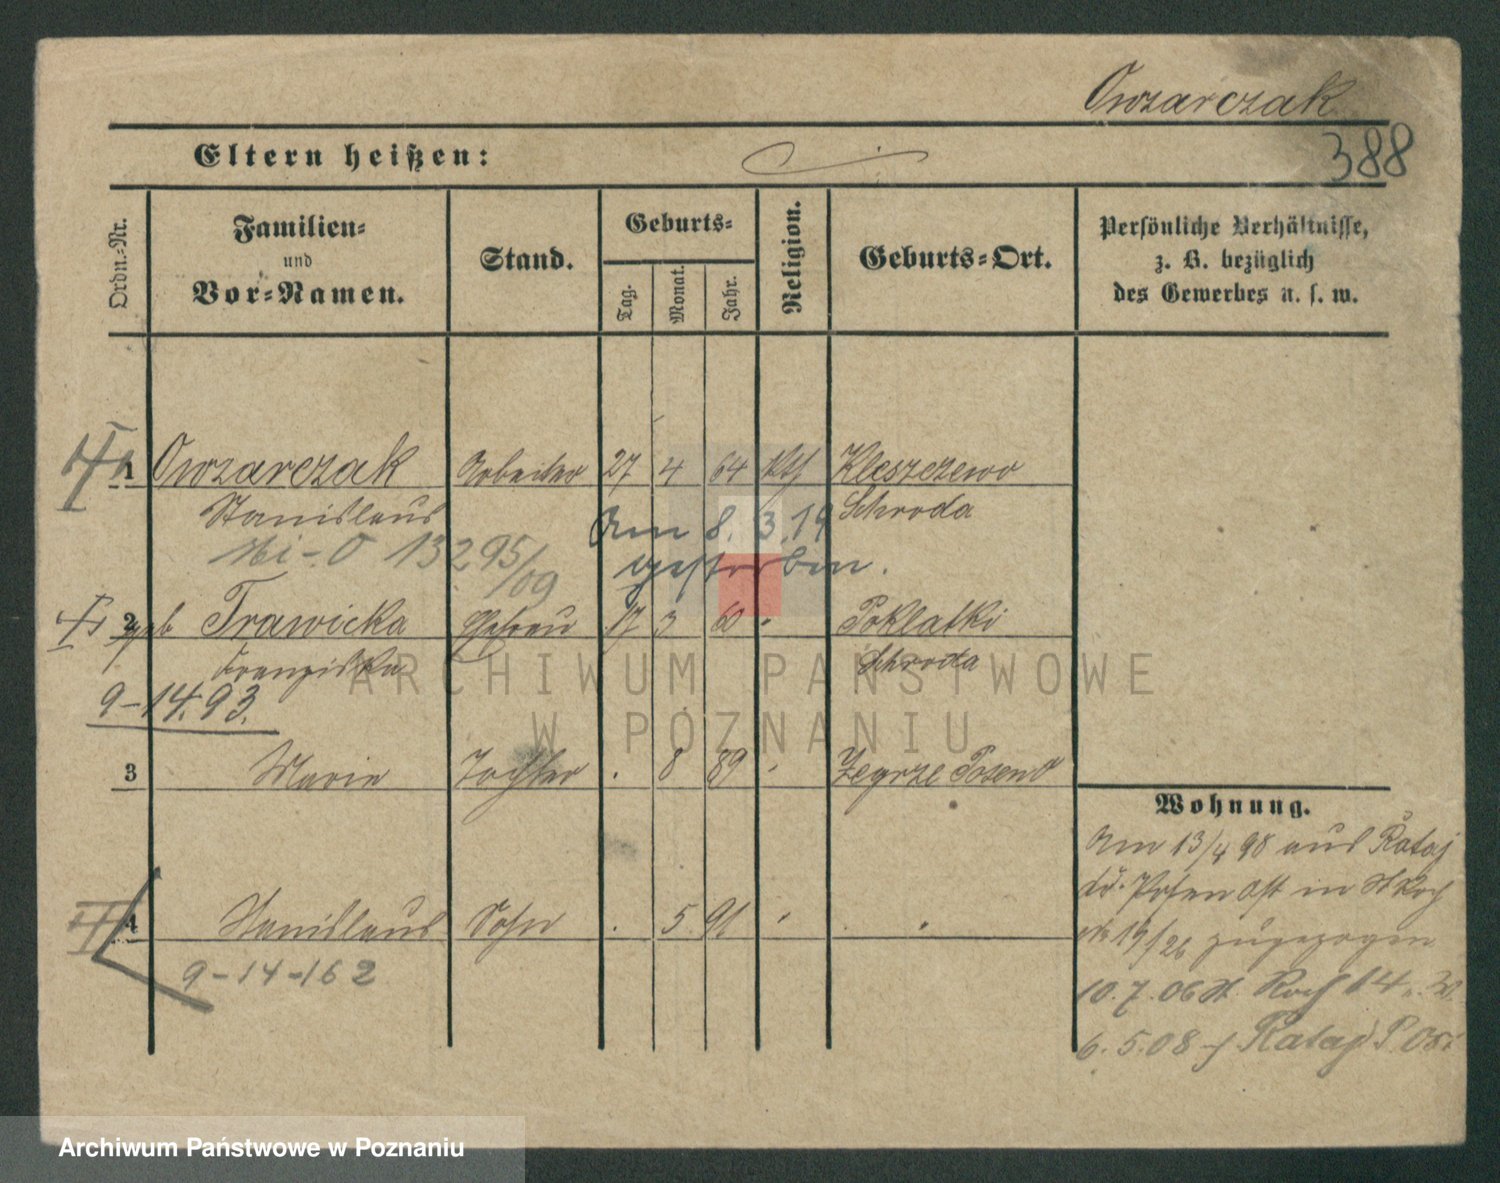 Owzarczak
388
Eltern heißen:
Ordn.-Nr.
Familien-
und
Vor-Namen.
Stand.
Geburts-
Tag.
Monat.
Jahr.
Religion.
Geburts-Ort.
Persönliche Verhältnisse,
z. B. bezüglich
des Gewerbes u. s. w.
1 Owzarczak Arbeiter 27 4 64 kth Kleszczewo
Stanislaus Schroda
13295/09
Am 8.3.19
gestorben.
2 geb Trawicka Ehefrau 17 3 60 Poklatki
Franziska Schroda
9-14.93.
3 Marie Tochter . 8 89 Zegrze Posen O
4 Stanislaus Sohn . 5 91
9-14-162
Wohnung.
Am 13/4 98 aus Rataj
Posen Ost in St Roch
No 19/26 zugezogen
10.7.06 St. Roch 14
6.5.08 Rataj P. Ost
ARCHIWUM PAŃSTWOWE
W POZNANIU
Archiwum Państwowe w Poznaniu